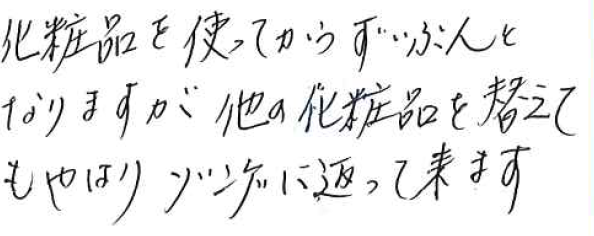 化粧品を使ってからずいぶんと
なりますが他の化粧品を替えて
もやはりゾンゲに返って来ます